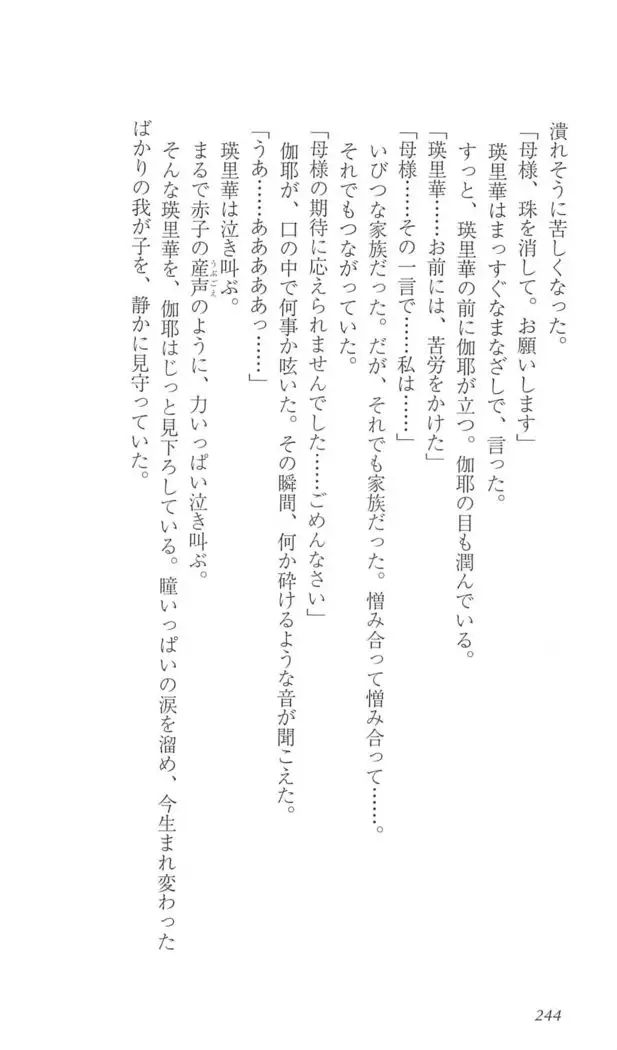 潰れそうに苦しくなった。
「母様、珠を消して。お願いします」
瑛里華はまっすぐなまなざしで、言った。
すっと、瑛里華の前に伽耶が立つ。伽耶の目も潤んでいる。
「瑛里華……お前には、苦労をかけた」
「母様……その一言で……私は……」
いびつな家族だった。だが、それでも家族だった。憎み合って憎み合って……。
それでもつながっていた。
「母様の期待に応えられませんでした……ごめんなさい」
伽耶が、口の中で何事か呟いた。その瞬間、何か砕けるような音が聞こえた。
「うあ……ああああぁっ……」
瑛里華は泣き叫ぶ。
まるで赤子の産声のように、力いっぱい泣き叫ぶ。
うぶごえ
そんな瑛里華を、伽耶はじっと見下ろしている。瞳いっぱいの涙を溜め、今生まれ変わった
ばかりの我が子を、静かに見守っていた。
244